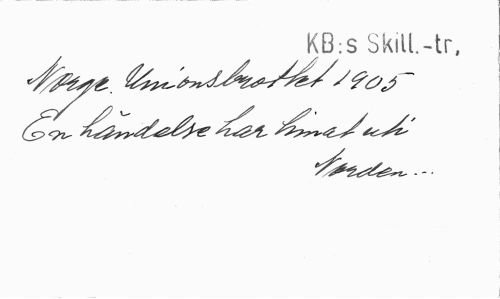 KB:s Skill.-tr,
Norge. Unionsbrottet 1905
En händelse har timat uti
Norden...